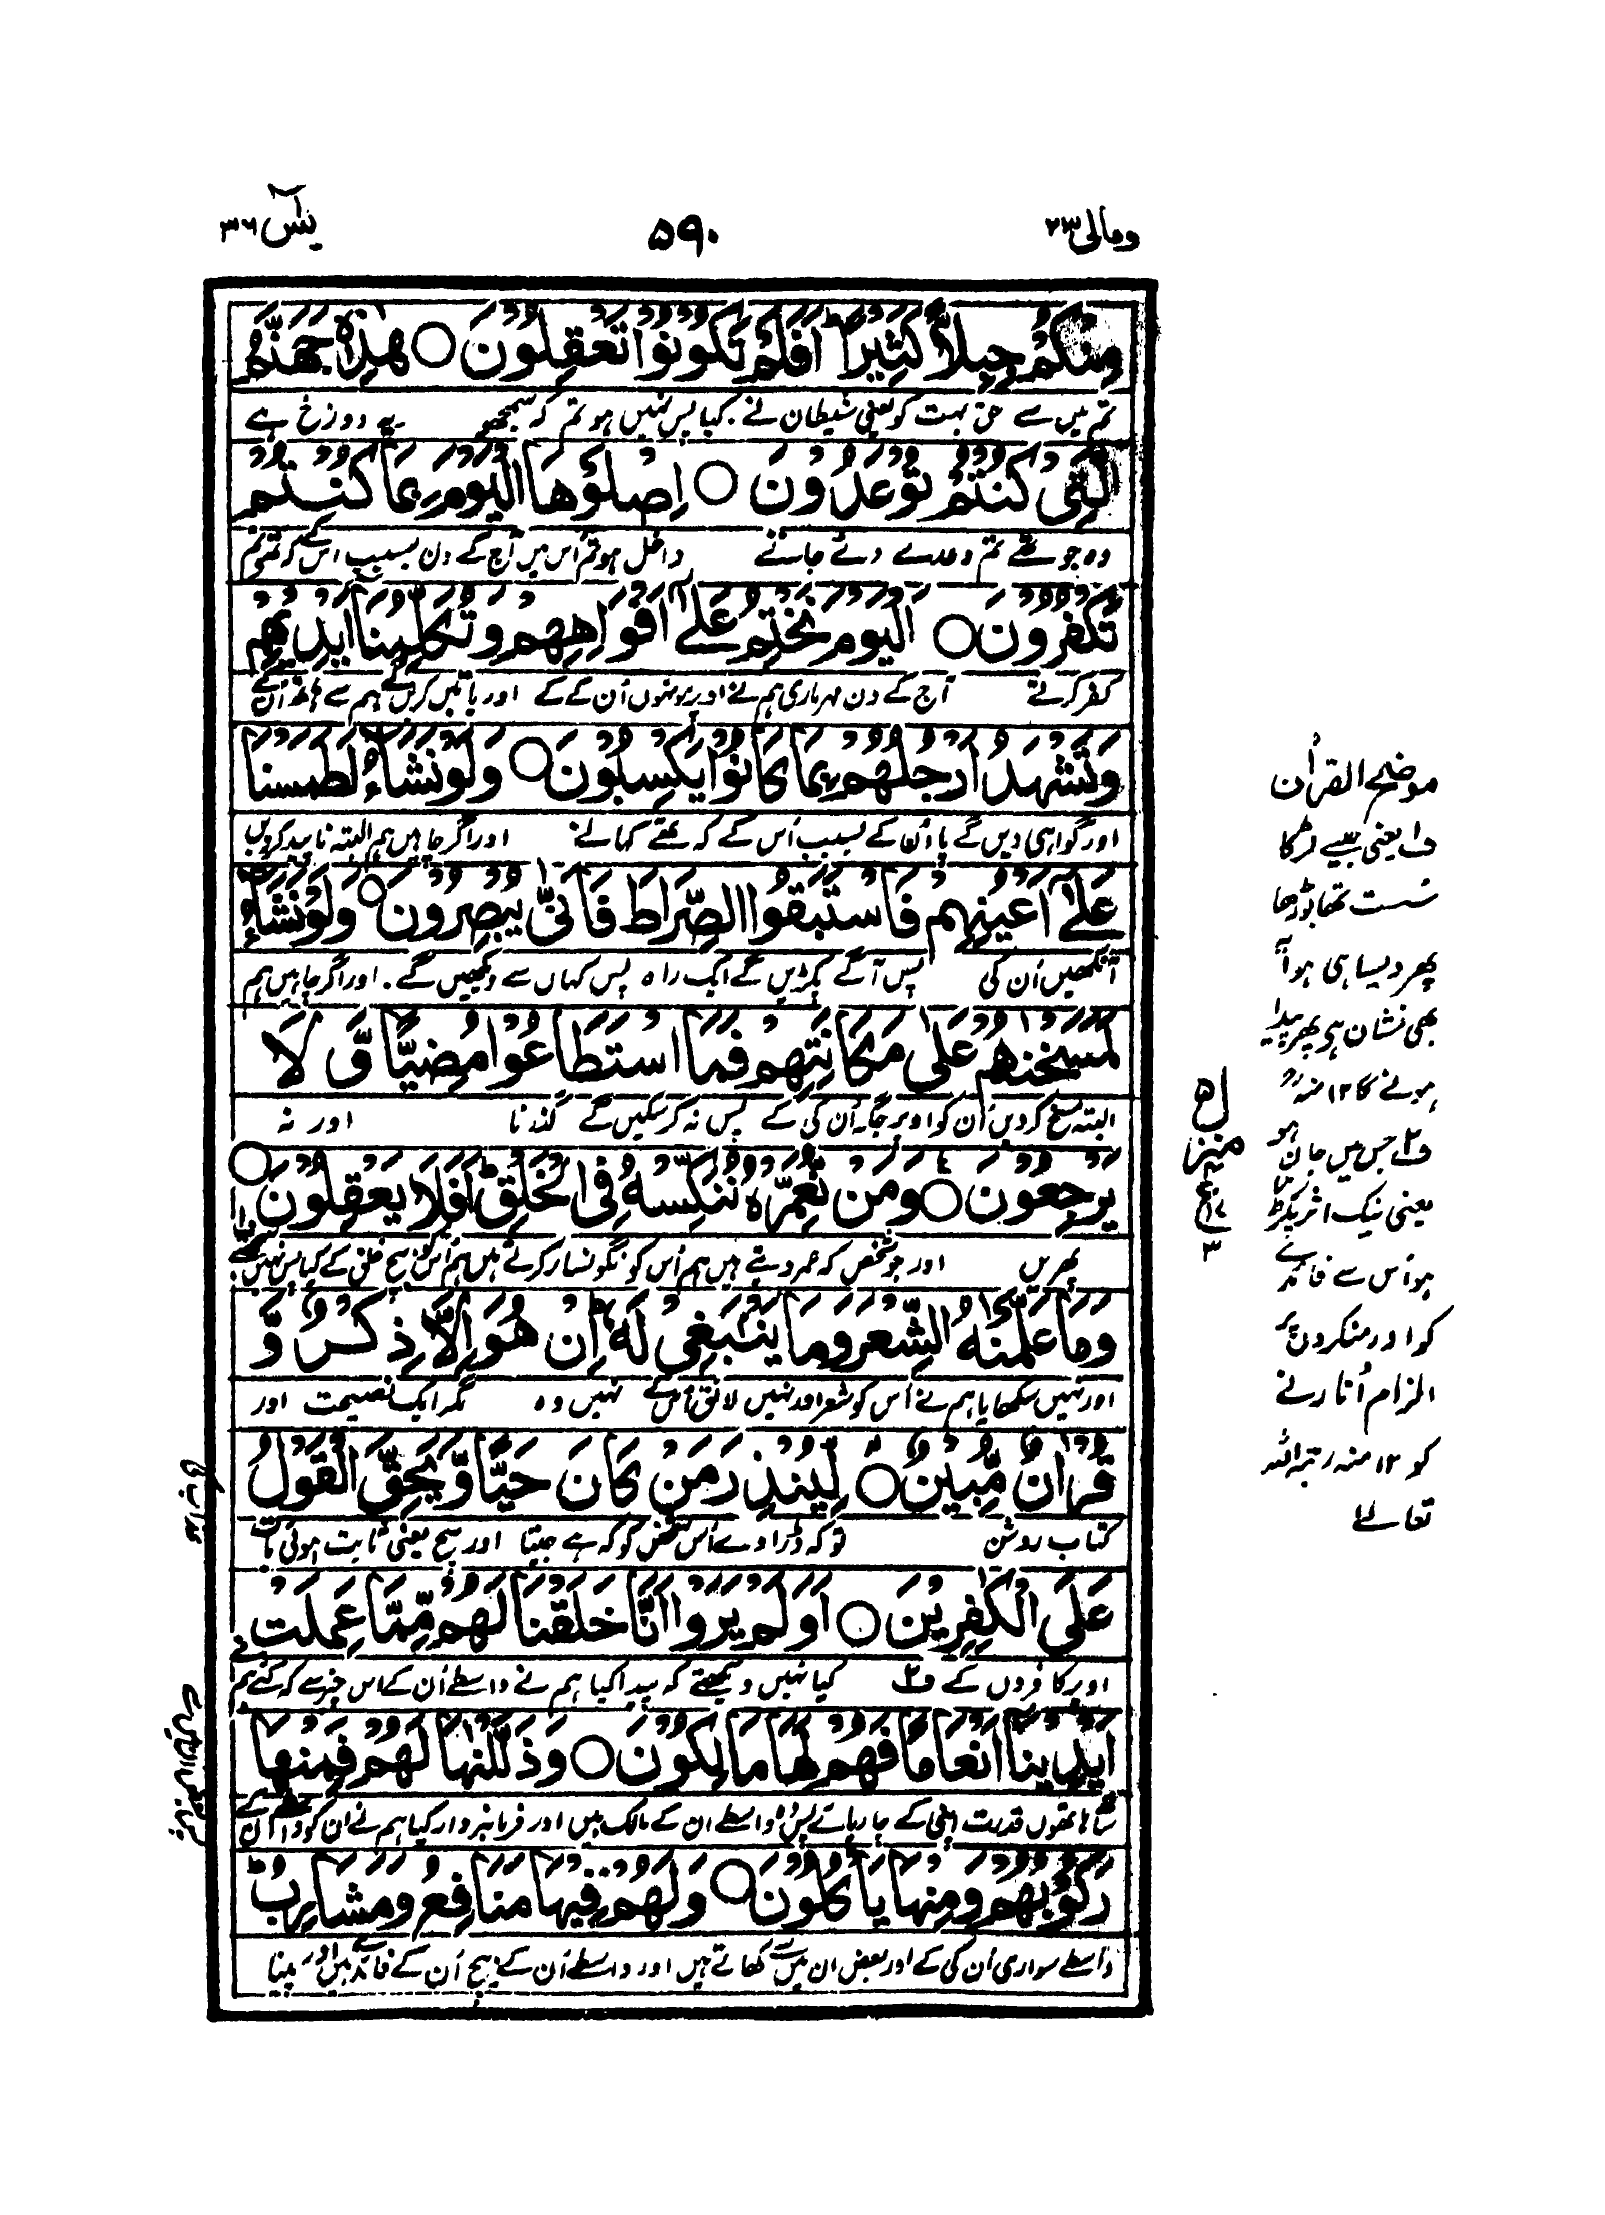 ومالی ٢٣
٥٩٠
یٰسٓ ٣٦
مِنْكُمْ جِبِلًّا كَثِيْرًا ؕ اَفَلَمْ تَكُوْنُوْا تَعْقِلُوْنَ ۝ هٰذِهٖ جَهَنَّمُ
تم میں سے خلق بہت کو یعنی شیطان نے. کیا پس نہیں ہو تم کہ سمجھو یہ دوزخ ہے
الَّتِيْ كُنْتُمْ تُوْعَدُوْنَ ۝ اِصْلَوْهَا الْيَوْمَ بِمَا كُنْتُمْ
وہ جو تھے تم وعدے دئے جاتے داخل ہو تم اس میں آج کے دن بسبب اس کے کہ تھے تم
تَكْفُرُوْنَ ۝ اَلْيَوْمَ نَخْتِمُ عَلٰٓى اَفْوَاهِهِمْ وَتُكَلِّمُنَا اَيْدِيْهِمْ
کفر کرتے آج کے دن مہر ماری ہم نے اوپر مونہوں اُن کے کے اور باتیں کریں گے ہم سے ہاتھ اُن کے
وَتَشْهَدُ اَرْجُلُهُمْ بِمَا كَانُوْا يَكْسِبُوْنَ ۝ وَلَوْ نَشَآءُ لَطَمَسْنَا
اور گواہی دیں گے پاؤں اُن کے بسبب اُس کے کہ تھے کماتے اور اگر چاہیں ہم البتہ ناپید کر دیں
عَلٰٓى اَعْيُنِهِمْ فَاسْتَبَقُوا الصِّرَاطَ فَاَنّٰى يُبْصِرُوْنَ ۝ وَلَوْ نَشَآءُ
آنکھیں اُن کی پس آگے پکڑیں گے ایک راہ پس کہاں سے دیکھیں گے. اور اگر چاہیں ہم
لَمَسَخْنٰهُمْ عَلٰى مَكَانَتِهِمْ فَمَا اسْتَطَاعُوْا مُضِيًّا وَّ لَا
البتہ مسخ کر دیں اُن کو اوپر جگہ اُن کی کے پس نہ کر سکیں گے گذرنا اور نہ
يَرْجِعُوْنَ ۝ وَمَنْ نُّعَمِّرْهُ نُنَكِّسْهُ فِي الْخَلْقِ ؕ اَفَلَا يَعْقِلُوْنَ ۝
پھریں اور جو شخص کہ عمر دیتے ہیں ہم اُس کو نگونسار کرتے ہیں ہم اُس کو بیچ خلق کے کیا پس نہیں سمجھتے
وَمَا عَلَّمْنٰهُ الشِّعْرَ وَمَا يَنْۢبَغِيْ لَهٗ ؕ اِنْ هُوَ اِلَّا ذِكْرٌ وَّ
اور نہیں سکھایا ہم نے اُس کو شعر اور نہیں لائق اُس کے نہیں وہ مگر ایک نصیحت اور
قُرْاٰنٌ مُّبِيْنٌ ۝ لِّيُنْذِرَ مَنْ كَانَ حَيًّا وَّيَحِقَّ الْقَوْلُ
کتاب روشن تو کہ ڈراوے اُس شخص کو کہ ہے جیتا اور سچ یعنی ثابت ہوئی بات
عَلَى الْكٰفِرِيْنَ ۝ اَوَلَمْ يَرَوْا اَنَّا خَلَقْنَا لَهُمْ مِّمَّا عَمِلَتْ
اوپر کافروں کے ف٢ کیا نہیں دیکھتے کہ پیدا کیا ہم نے واسطے اُن کے اس چیز سے کہ کئے ہم نے
اَيْدِيْنَا اَنْعَامًا فَهُمْ لَهَا مَالِكُوْنَ ۝ وَذَلَّلْنٰهَا لَهُمْ فَمِنْهَا
ساتھ ہاتھوں قدرت اپنی کے چارپائے پس وہ واسطے ان کے مالک ہیں اور فرمانبردار کیا ہم نے ان کو واسطے ان کے
رَكُوْبُهُمْ وَمِنْهَا يَاْكُلُوْنَ ۝ وَلَهُمْ فِيْهَا مَنَافِعُ وَمَشَارِبُ ؕ
واسطے سواری اُن کی کے اور بعض ان میں سے کھاتے ہیں اور واسطے اُن کے بیچ اُن کے فائدے ہیں اور پینا
موضح القرآن
ف١ یعنی جیسے لڑکا
سُست تھا بوڑھا
پھر ویسا ہی ہوا یہ
بھی نشان ہے پھر پیدا
ہونے کا ١٢ منہ رح
ف٢ جس میں جان ہو
یعنی نیک اثر پکڑتا
ہو اُس سے فائدے
کو اور منکروں پر
الزام اُتارنے
کو ١٢ منہ رحمہ اللہ
تعالےٰ
منزل
٣
عذاب کی